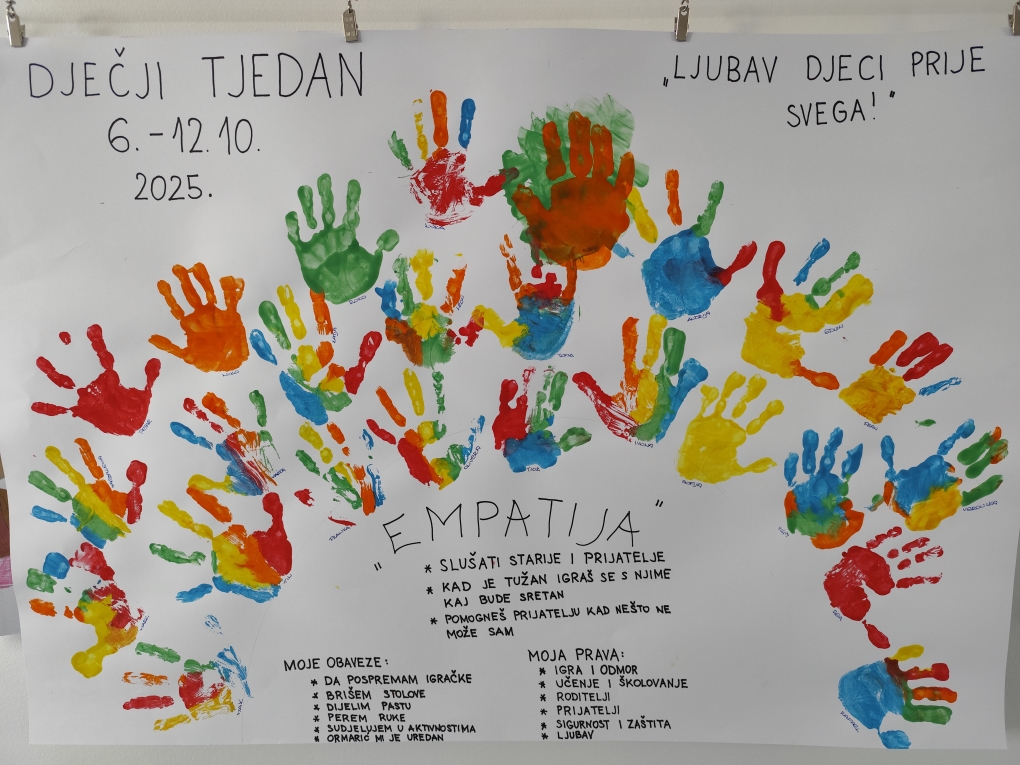 DJEČJI TJEDAN
6. - 12. 10.
2025.
"LJUBAV DJECI PRIJE
SVEGA!"
"EMPATIJA"
* SLUŠATI STARIJE I PRIJATELJE
* KAD JE TUŽAN IGRAŠ SE S NJIME
KAJ BUDE SRETAN
* POMOGNEŠ PRIJATELJU KAD NEŠTO NE
MOŽE SAM
MOJE OBAVEZE:
* DA POSPREMAM IGRAČKE
* BRIŠEM STOLOVE
* DIJELIM PASTU
* PEREM RUKE
* SUDJELUJEM U AKTIVNOSTIMA
* ORMARIĆ MI JE UREDAN
MOJA PRAVA:
* IGRA I ODMOR
* UČENJE I ŠKOLOVANJE
* RODITELJI
* PRIJATELJI
* SIGURNOST I ZAŠTITA
* LJUBAV